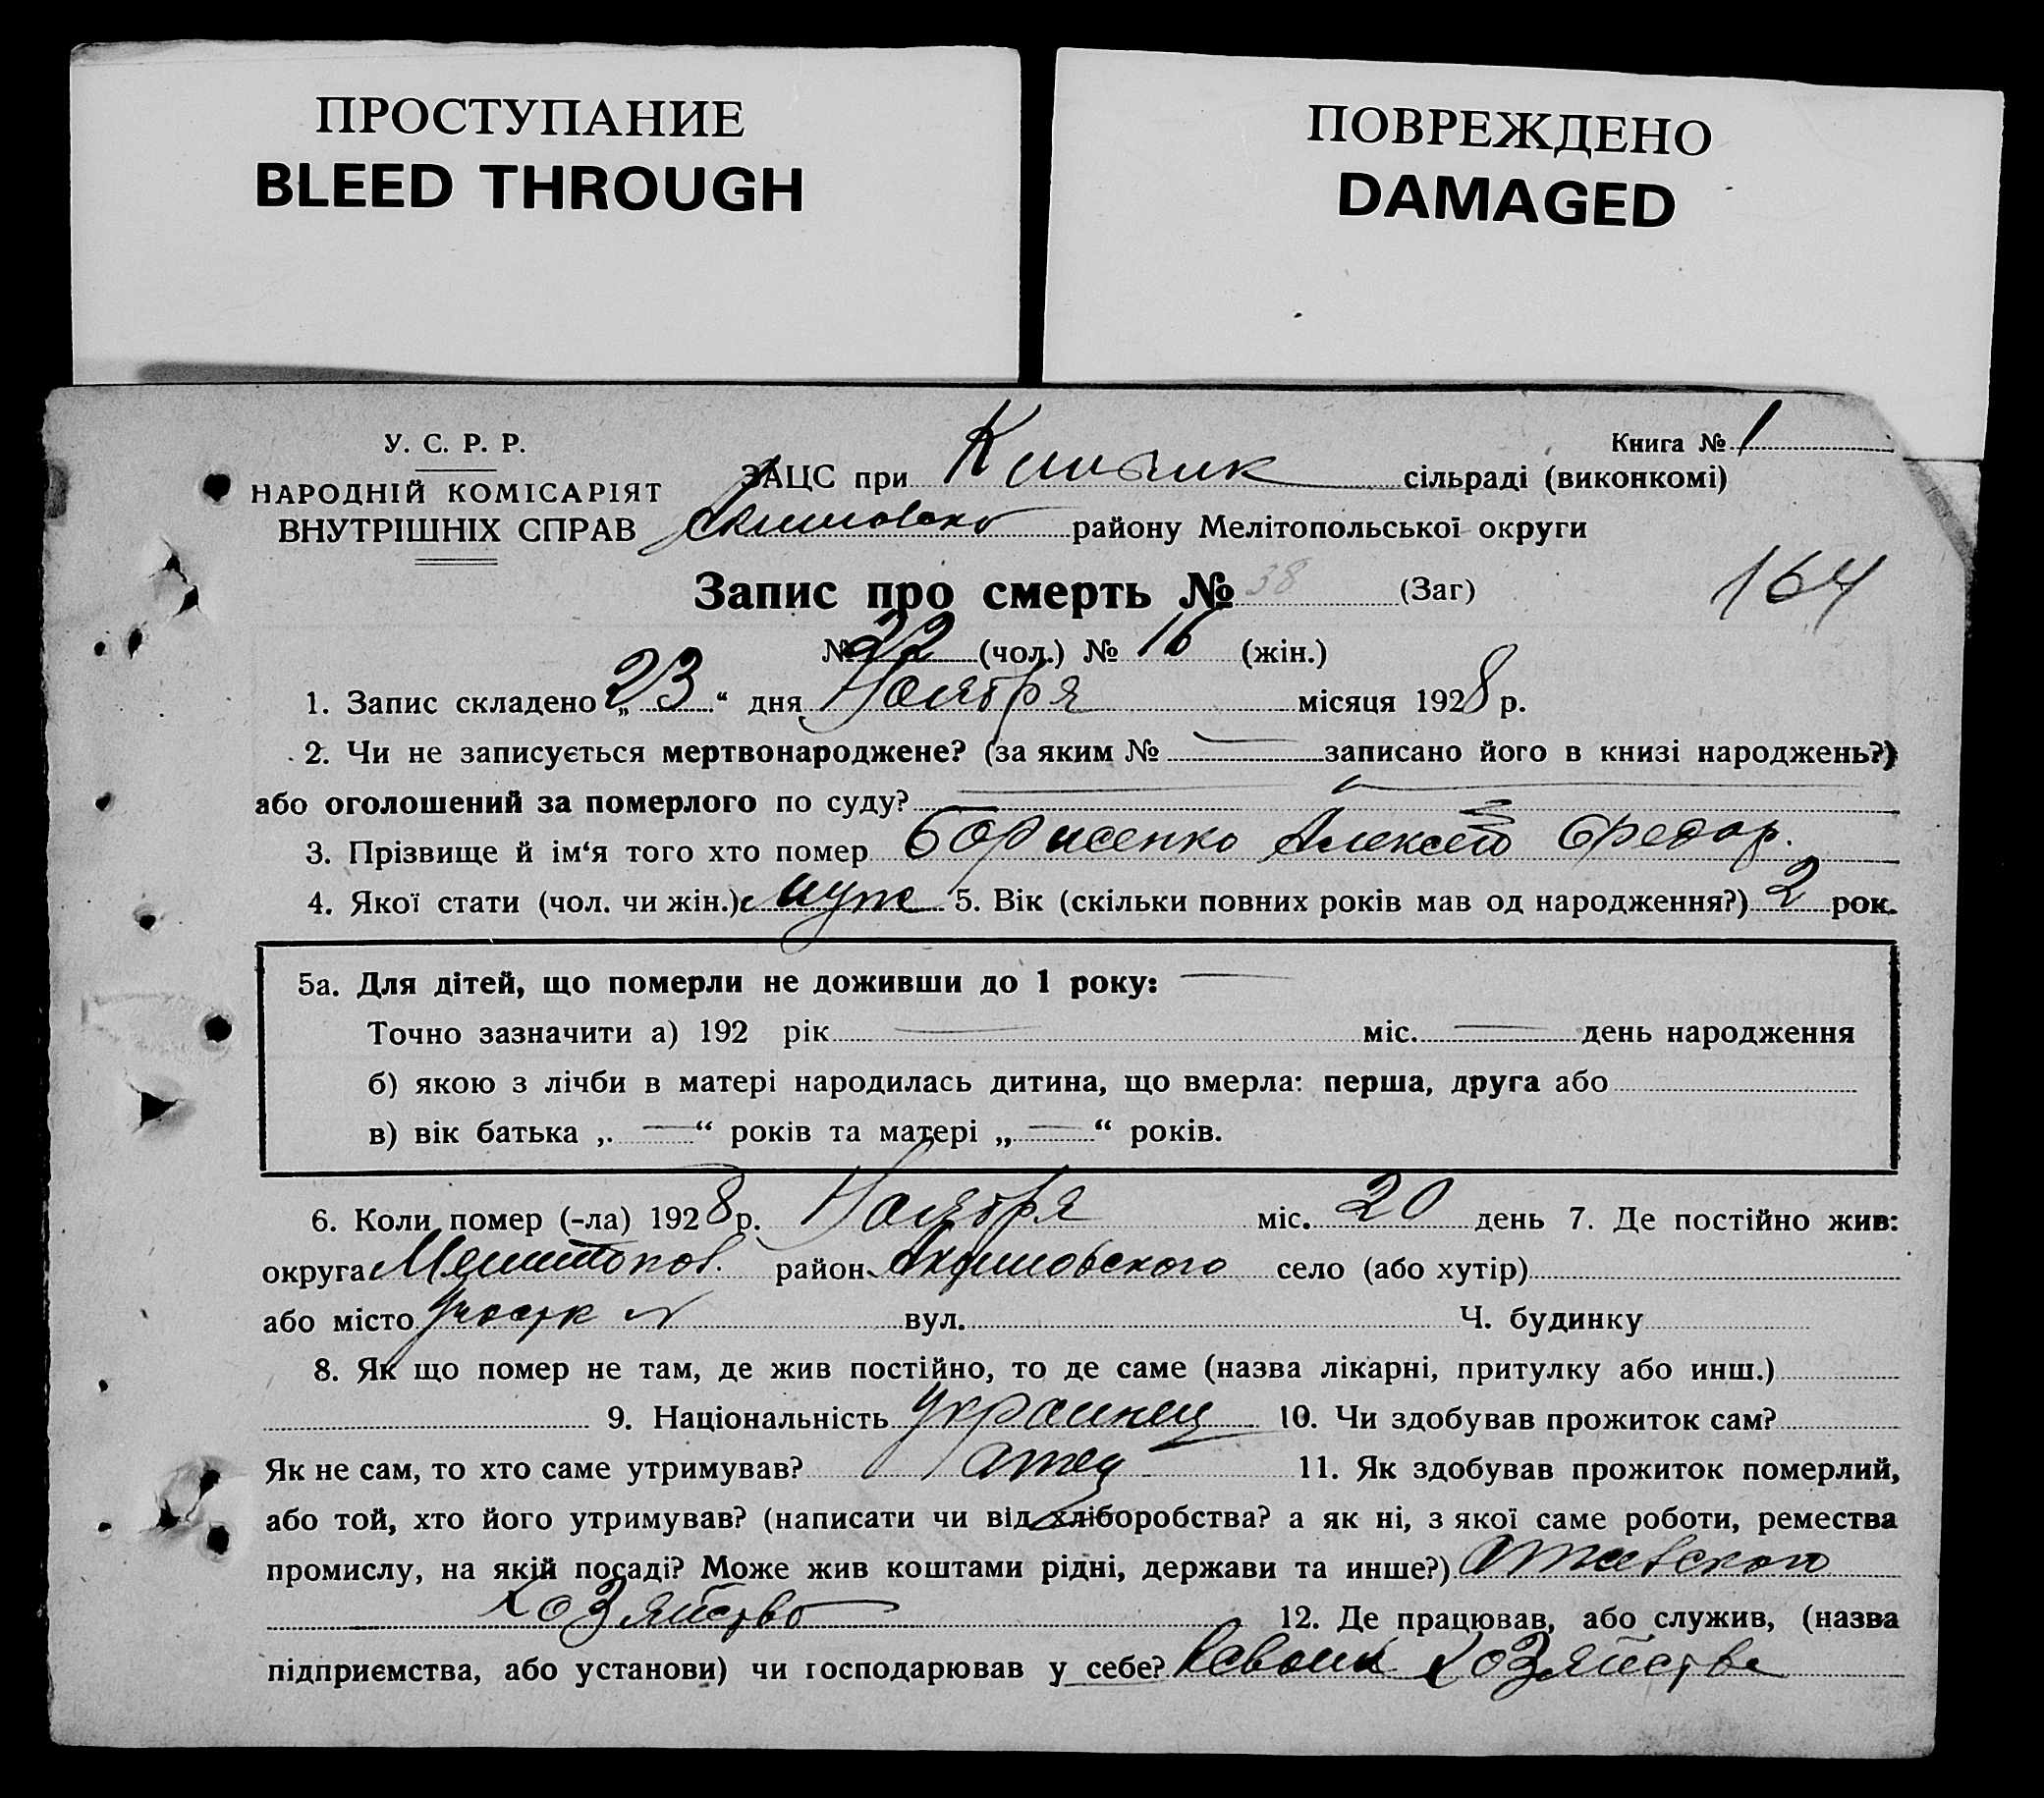 ПРОСТУПАНИЕ
BLEED THROUGH
ПОВРЕЖДЕНО
DAMAGED
У. С. Р. Р.
НАРОДНІЙ КОМІСАРІЯТ
ВНУТРІШНІХ СПРАВ
Книга № 1
ЗАЦС при сільраді (виконкомі)
району Мелітопольської округи
Запис про смерть № 38 (Заг)
164
№ 22 (чол.) № 16 (жін.)
1. Запис складено „23“ дня Ноября місяця 1928 р.
2. Чи не записується мертвонароджене? (за яким № — записано його в книзі народжень?)
або оголошений за померлого по суду? —
3. Прізвище й ім‘я того хто помер Борисенко Алексей Федор.
4. Якої стати (чол. чи жін.) муж 5. Вік (скільки повних років мав од народження?) 2 рок.
5а. Для дітей, що померли не доживши до 1 року: —
Точно зазначити а) 192 рік — міс. — день народження
б) якою з лічби в матері народилась дитина, що вмерла: перша, друга або
в) вік батька „ — “ років та матері „ — “ років.
6. Коли помер (-ла) 1928 р. Ноября міс. 20 день 7. Де постійно жив:
округа Мелитопол. район Акимовского село (або хутір)
або місто вул. Ч. будинку
8. Як що помер не там, де жив постійно, то де саме (назва лікарні, притулку або инш.)
9. Національність Украинец 10. Чи здобував прожиток сам?
Як не сам, то хто саме утримував? отец 11. Як здобував прожиток померлий,
або той, хто його утримував? (написати чи від хліборобства? а як ні, з якої саме роботи, ремества
промислу, на якій посаді? Може жив коштами рідні, держави та инше?)
Хозяйство 12. Де працював, або служив, (назва
підприємства, або установи) чи господарював у себе? Хозяйстве